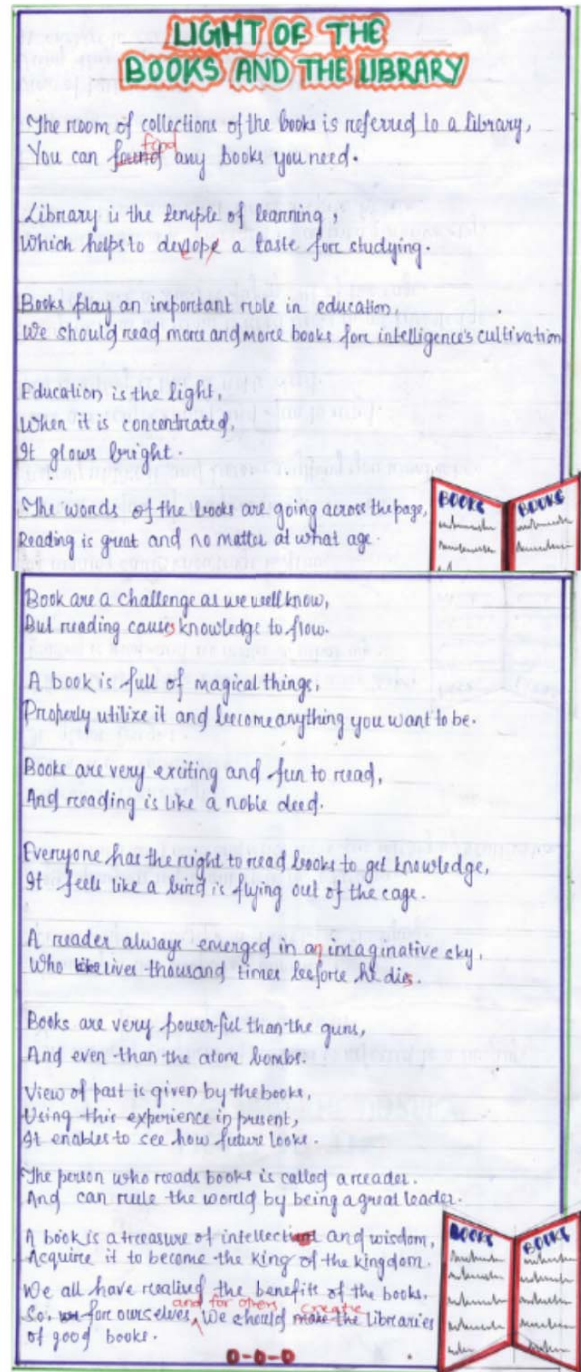 LIGHT OF THE
BOOKS AND THE LIBRARY
The room of collections of the books is referred to a library,
You can found find any books you need.
Library is the temple of learning,
Which helps to develope a taste for studying.
Books play an important role in education,
We should read more and more books for intelligence's cultivation
Education is the light,
When it is concentrated,
It glows bright.
The words of the books are going across the page,
Reading is great and no matter at what age.
BOOKS BOOKS
Book are a challenge as we well know,
But reading causes knowledge to flow.
A book is full of magical things,
Properly utilize it and become anything you want to be.
Books are very exciting and fun to read,
And reading is like a noble deed.
Everyone has the right to read books to get knowledge,
It feels like a bird is flying out of the cage.
A reader always emerged in an imaginative sky,
Who lives thousand times before he dies.
Books are very powerful than the guns,
And even than the atom bombs.
View of past is given by the books,
Using this experience in present,
It enables to see how future looks.
The person who reads books is called a reader.
And can rule the world by being a great leader.
A book is a treasure of intellect and wisdom,
Acquire it to become the king of the kingdom.
We all have realised the benefits of the books,
So, for ourselves, and for others We should make the create libraries
of good books.
BOOKS BOOKS
0-0-0